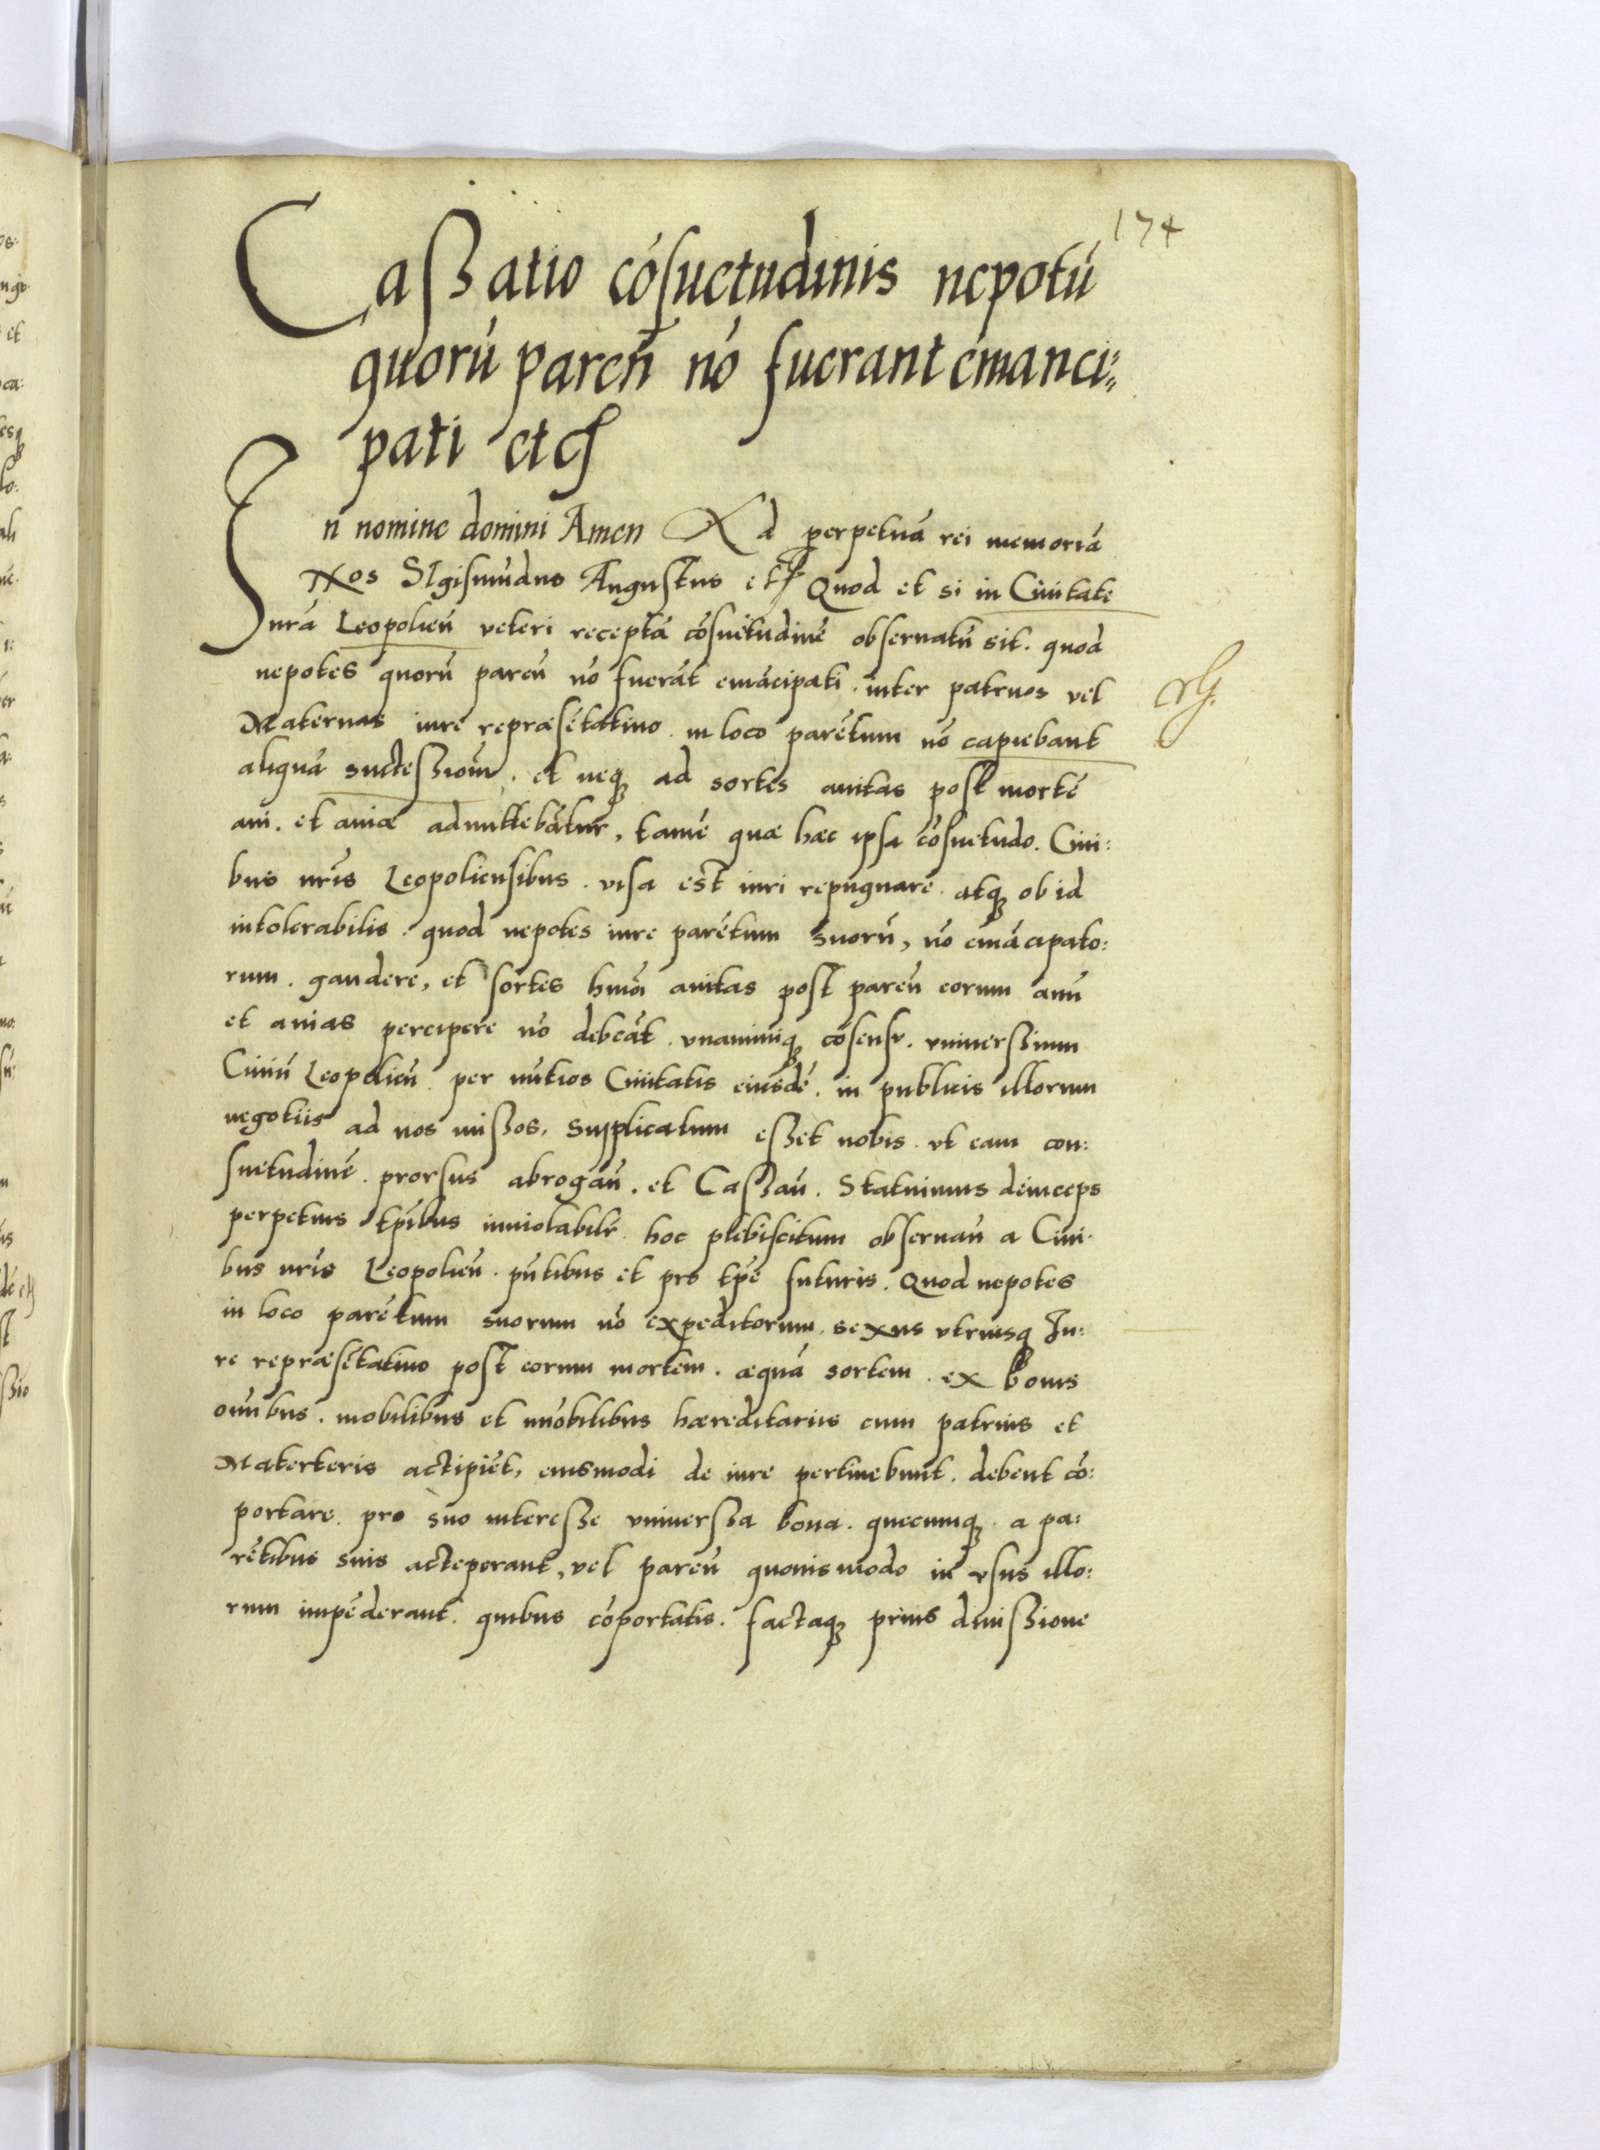 174
Caßatio cósuetudinis nepotú
quorú pareñ nó fuerant emanci⸗
pati etc
In nomine domini Amen Ad perpetuá rei memoriá
Nos SIgismúdus Augustus etc Quod et si in Ciuitate
nrá Leopolieñ veteri receptá cósuetudine obseruatú sit. quod
nepotes quorú pareñ nó fuerát emácipati. inter patruos vel
Maternas iure repræsétatiuo. in loco parétum nó capiebant
aliquá suctessioné. et neq ad sortes auitas post morté
aui. et auiæ admittebátur, tamé quæ hæc ipsa cósuetudo. Ciui:
bus nris Leopoliensibus. visa est iuri repugnare. atq ob id
intolerabilis. quod nepotes iure parétum suorú, nó emácipato:
rum. gaudere, et sortes hmoi auitas post pareñ eorum auú
et auias percipere nó debeát. vnanimiq cósensu. vniuerssium
Ciuiú Leopolieñ. per nútios Ciuitatis eiusdé. in publicis illorum
negotiis ad nos mißos, supplicatum eßet nobis. vt eam con:
suetudiné. prorsus abrogáñ. et Caßáñ. Statuimus deinceps
perpetuis tpibus inuiolabilr. hoc plebiscitum obseruáñ a Ciui.
bus nris Leopolieñ. pñtibus et pro tpe futuris. Quod nepotes
in loco parétum suorum nó expeditorum. sexus vtriusq Iu:
re repræsétatiuo post eorum mortem. æquá sortem. ex bonis
omibus. mobilibus et imobilibus hæreditariis cum patruis et
Materteris actipiét, eiusmodi de iure pertinebunt. debent có:
portare. pro suo intereße vniuerßa bona. quecumq. a pa:
rétibus suis acteperant, vel pareñ quouismodo in vsus illo:
rum impéderant. quibus cóportatis. factaq prius diuißione